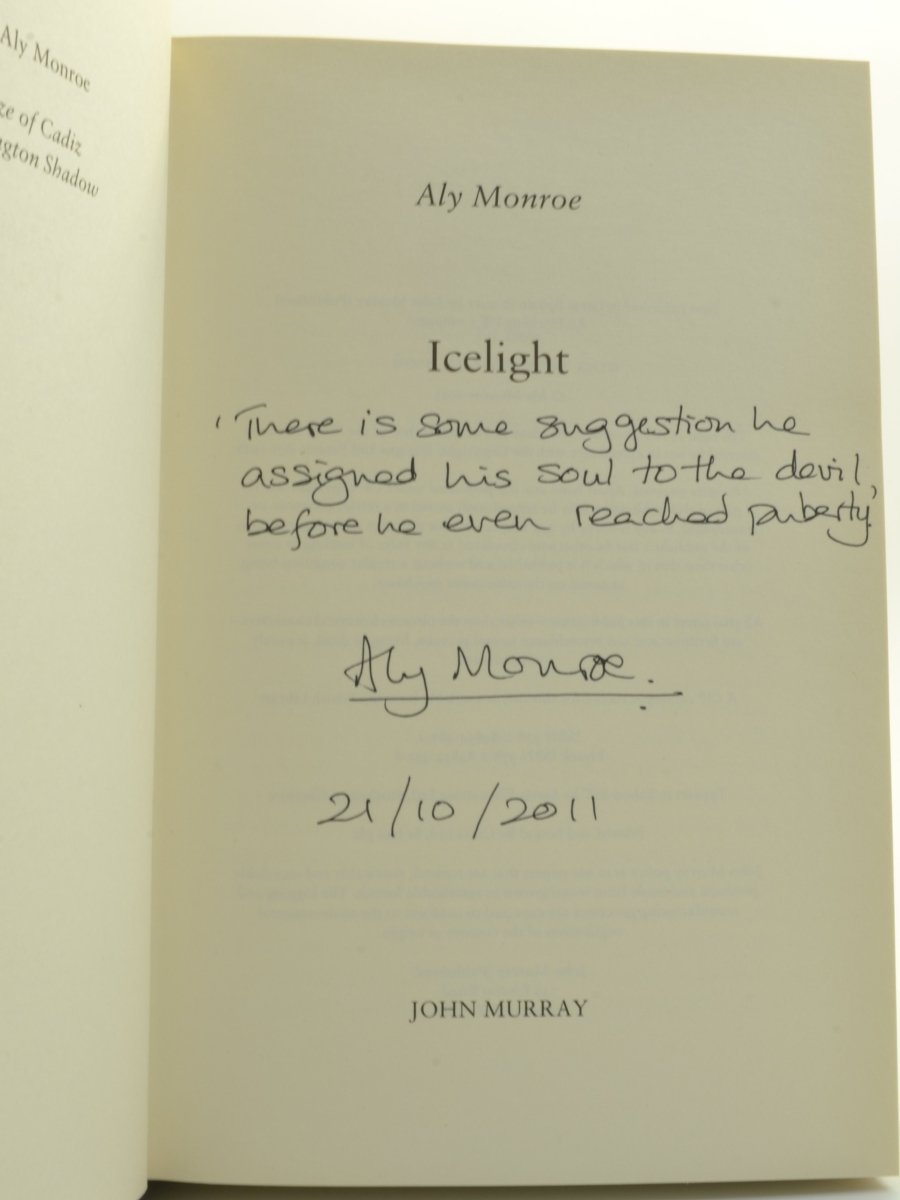 Aly Monroe
ze of Cadiz
ngton Shadow
Aly Monroe
Icelight
'There is some suggestion he
assigned his soul to the devil,
before he even reached puberty.'
Aly Monroe.
21/10/2011
JOHN MURRAY